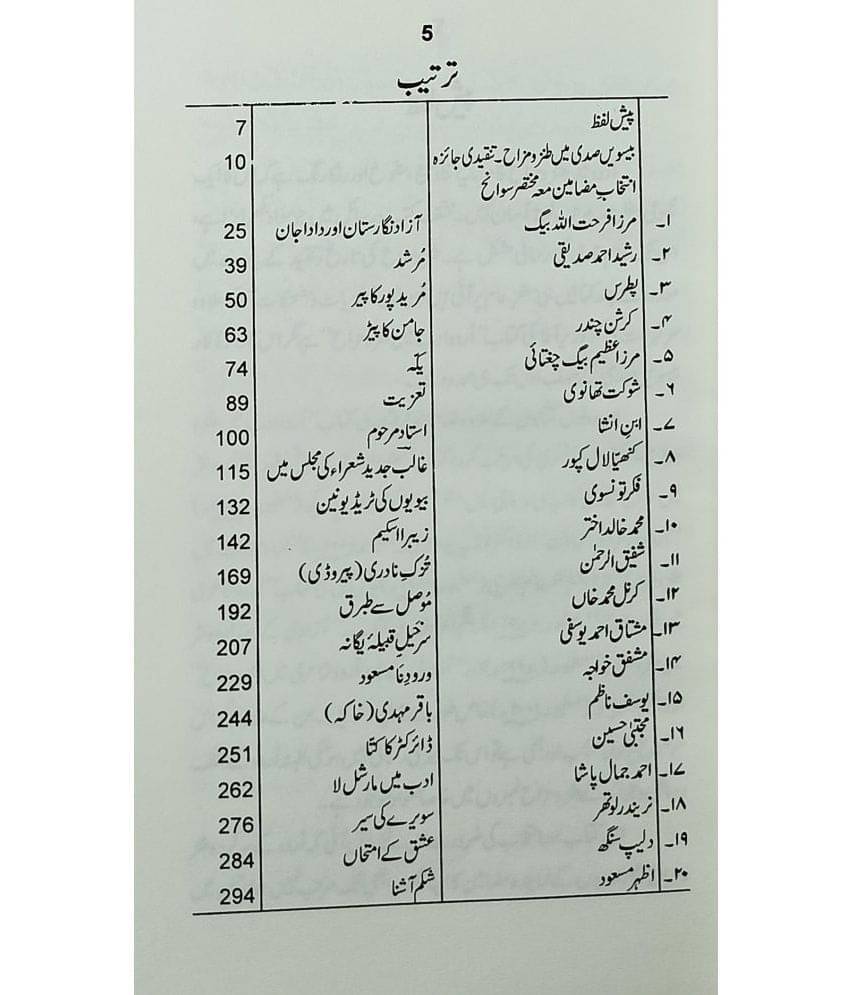 5
ترتیب
پیش لفظ 7
بیسویں صدی میں طنز و مزاح۔ تنقیدی جائزہ 10
انتخابِ مضامین معہ مختصر سوانح
۱۔ مرزا فرحت اللہ بیگ آزاد نگارستان اور دادا جان 25
۲۔ رشید احمد صدیقی مُرشد 39
۳۔ پطرس مُرید پور کا پیر 50
۴۔ کرشن چندر جامن کا پیڑ 63
۵۔ مرزا عظیم بیگ چغتائی یکّہ 74
۶۔ شوکت تھانوی تعزیت 89
۷۔ ابنِ انشا استاد مرحوم 100
۸۔ کنھیّا لال کپور غالب جدید شعراء کی مجلس میں 115
۹۔ فکر تونسوی بیویوں کی ٹریڈ یونین 132
۱۰۔ محمد خالد اختر زیبرا اسکیم 142
۱۱۔ شفیق الرحمٰن تُزکِ نادری (پیروڈی) 169
۱۲۔ کرنل محمد خاں مُوصل سے طبرق 192
۱۳۔ مشتاق احمد یوسفی سرخیلِ قبیلۂ یگانہ 207
۱۴۔ مشفق خواجہ ورودِ نا مسعود 229
۱۵۔ یوسف ناظم باقر مہدی (خاکہ) 244
۱۶۔ مجتبیٰ حسین ڈائرکٹر کا کتّا 251
۱۷۔ احمد جمال پاشا ادب میں مارشل لا 262
۱۸۔ نریندر لوتھر سویرے کی سیر 276
۱۹۔ دلیپ سنگھ عشق کے امتحاں 284
۲۰۔ اظہر مسعود شکم آشنا 294